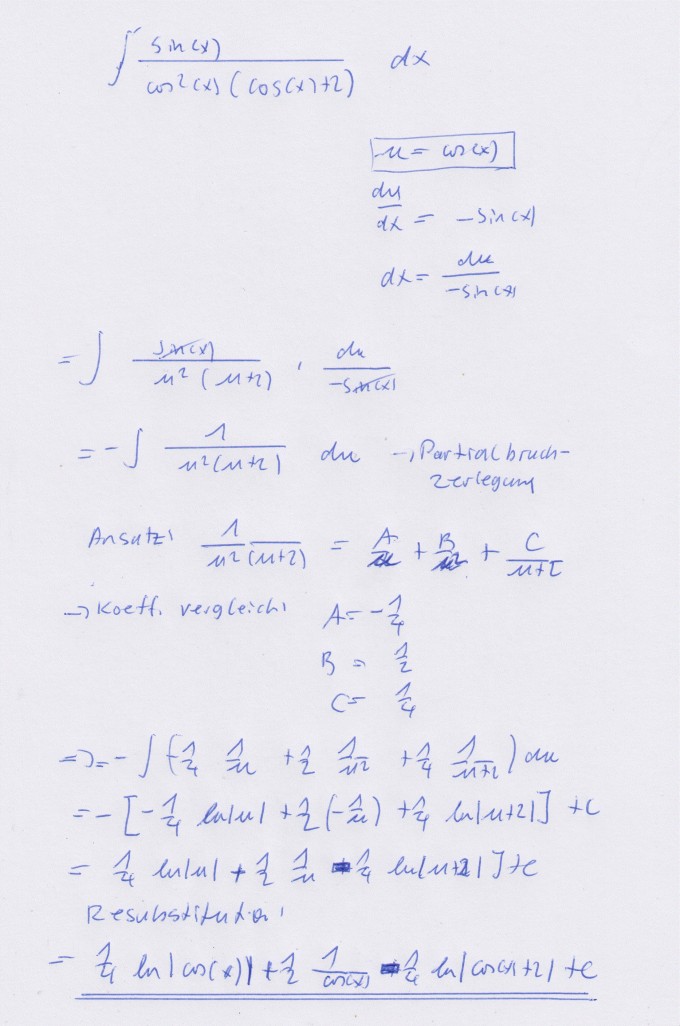 ∫ sin(x) / cos²(x) (cos(x)+2) dx
u = cos(x)
du/dx = -sin(x)
dx = du / -sin(x)
= ∫ sin(x) / u² (u+2) · du / -sin(x)
= - ∫ 1 / u²(u+2) du → Partialbruch-
zerlegung
Ansatz: 1 / u²(u+2) = A/u + B/u² + C/u+2
→ Koeff. vergleich: A = -1/4
B = 1/2
C = 1/4
=> = - ∫ (-1/4 1/u + 1/2 1/u² + 1/4 1/u+2) du
= - [-1/4 ln|u| + 1/2 (-1/u) + 1/4 ln|u+2|] + C
= 1/4 ln|u| + 1/2 1/u - 1/4 ln|u+2| ] + c
Resubstitution:
= 1/4 ln|cos(x)| + 1/2 1/cos(x) - 1/4 ln|cos(x)+2| + c